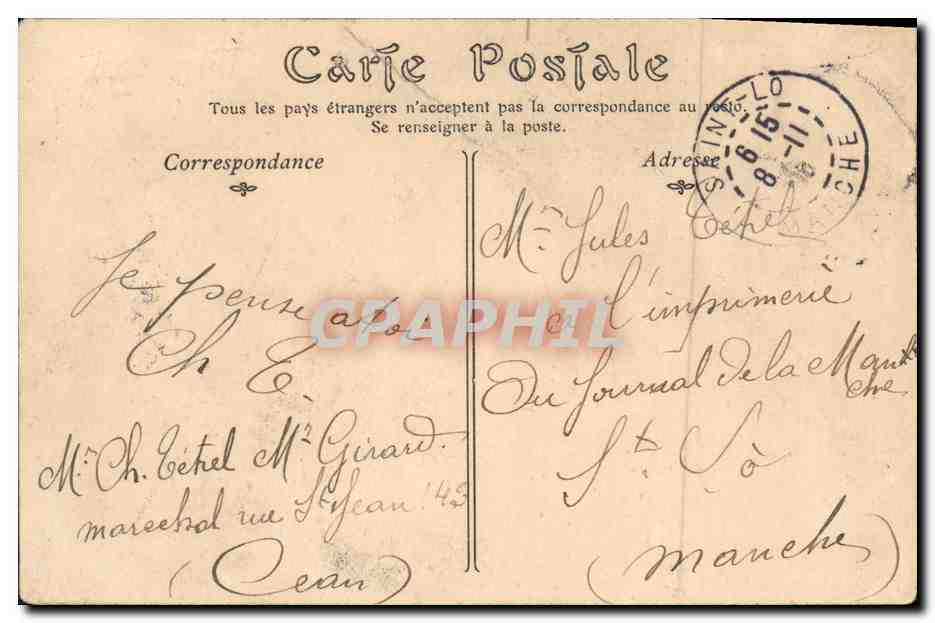 Carte Postale
Tous les pays étrangers n'acceptent pas la correspondance au recto.
Se renseigner à la poste.
Correspondance
Adresse
SAINT-LO
6 15
8 -11
MANCHE
Je pense a toi
Ch T.
Mr. Ch. Tétrel Mr Girard.
marechal rue St Jean 43
(Caen)
Mr Jules Tétrel
a l'imprimerie
Du Journal de la Man
che
St. Lô
(Manche)
CPAPHIL